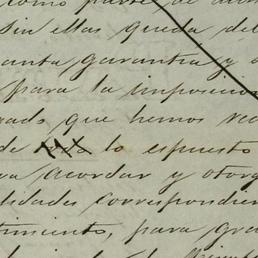 como parte de
sin ellas queda del
anta garantia y
para la imposicion
ado que hemos
de lo espuesto
va acordar y otorg
lidades correspondien
timiento, para gra